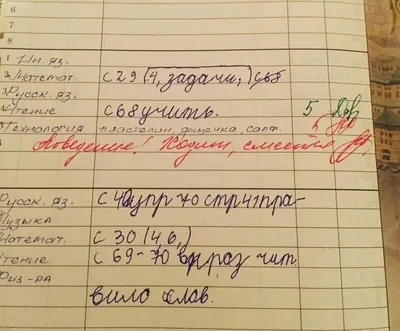 6
7
8
1 Ин. яз.
2 Математ. с 29 (4, задачи,) с 68
3 Русск. яз.
Чтение с 68 учить. 5
Технология пластелин, дощечка, салф.
Поведение! Ходит, смеется
Русск. яз. с 40 упр 70 стр 41 пра-
Музыка
Математ. с 30 (4, 6,)
Чтение с 69-70 выраз чит
Физ-ра
вило слов.